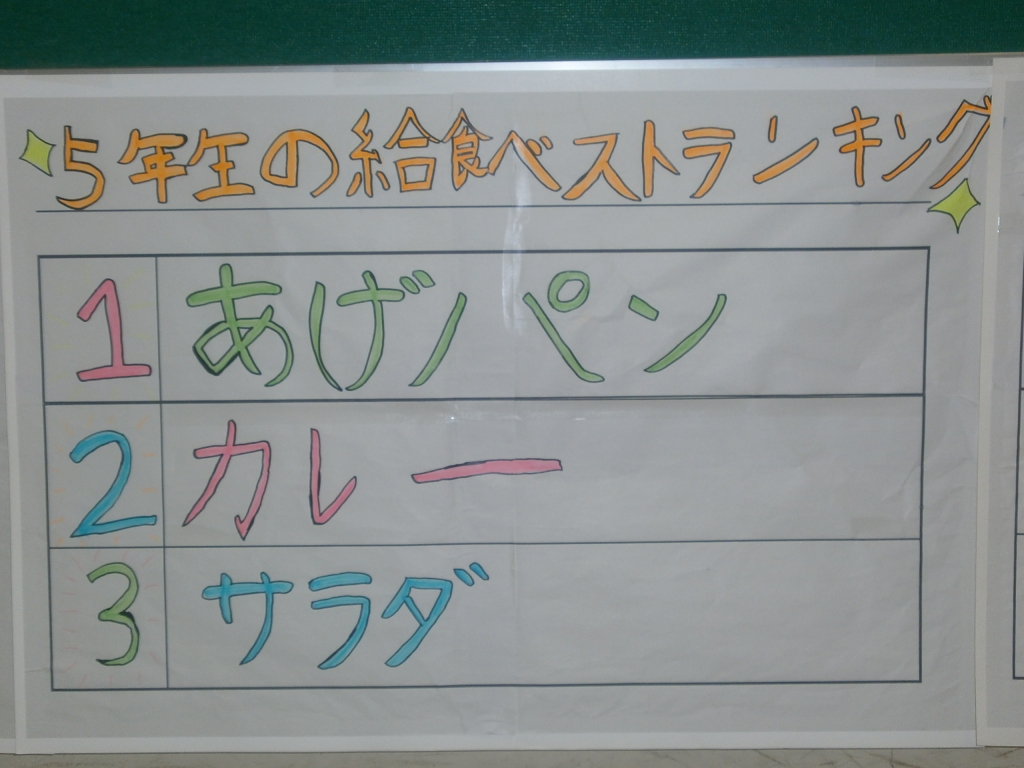 5年生の給食ベストランキング
1 あげパン
2 カレー
3 サラダ